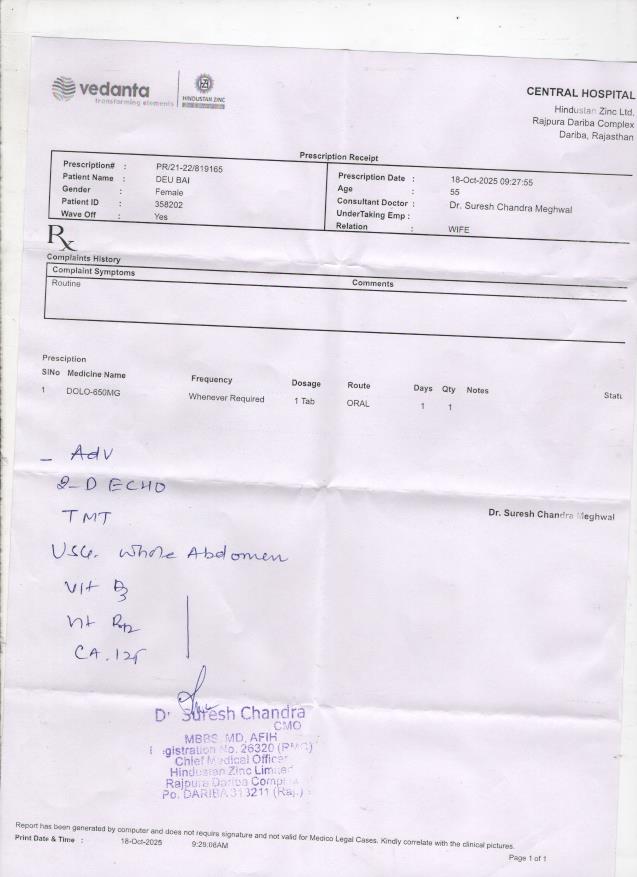 vedanta
transforming elements
HINDUSTAN ZINC
CENTRAL HOSPITAL
Hindustan Zinc Ltd,
Rajpura Dariba Complex
Dariba, Rajasthan
Prescription Receipt
Prescription# : PR/21-22/819165
Patient Name : DEU BAI
Gender : Female
Patient ID : 358202
Wave Off : Yes
Prescription Date : 18-Oct-2025 09:27:55
Age : 55
Consultant Doctor : Dr. Suresh Chandra Meghwal
UnderTaking Emp :
Relation : WIFE
Rx
Complaints History
Complaint Symptoms Comments
Routine
Presciption
SlNo Medicine Name Frequency Dosage Route Days Qty Notes Statu
1 DOLO-650MG Whenever Required 1 Tab ORAL 1 1
- Adv
2-D ECHO
TMT
USG. Whole Abdomen
Vit D3
Vit B12
CA.125
Dr. Suresh Chandra Meghwal
Dr Suresh Chandra
CMO
MBBS, MD, AFIH
gistration No. 26320 (RMC)
Chief Medical Officer
Hindustan Zinc Limited
Rajpura Dariba Complex
Po. DARIBA 313211 (Raj.)
Report has been generated by computer and does not require signature and not valid for Medico Legal Cases. Kindly correlate with the clinical pictures.
Print Date & Time : 18-Oct-2025 9:29:06AM
Page 1 of 1